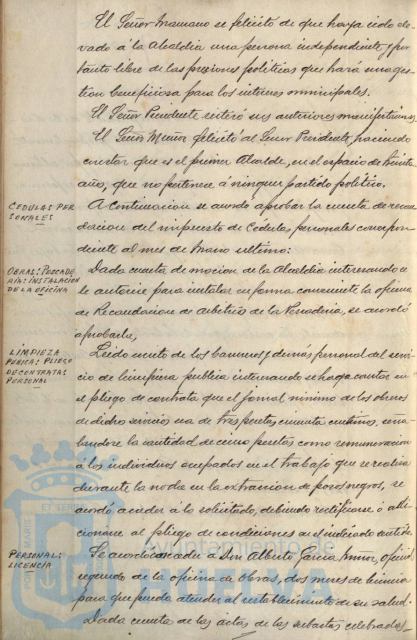 El Señor Manzano se felicitó de que haya sido ele-
vado á la Alcaldia una persona independiente, y por
tanto libre de las presiones politicas que hará una ges-
tion beneficiosa para los intereses municipales.
El Señor Presidente reiteró sus anteriores manifestaciones.
El Señor Muñoz felicitó al Señor Presidente, haciendo
constar que es el primer Alcalde, en el espacio de treinta
años, que no pertenece á ningun partido politico.
CEDULAS PER
SONALES
A continuacion se acordó aprobar la cuenta de recau
dacion del impuesto de Cedulas personales correspon-
diente al mes de Marzo ultimo:
OBRAS: PESCADE
RIA: INSTALACION
DE LA OFICINA
Dada cuenta de mocion de la Alcaldia interesando se
le autorice para instalar en forma conveniente la oficina
de Recaudacion de arbitrios de la Pescaderia, se acordó
aprobarla,
LIMPIEZA
PUBICA: PLIEGO
DE CONTRATA:
PERSONAL
Leido escrito de los barrenderos y demás personal del servi
cio de limpieza publica interesando se haga constar en
el pliego de contrata que el jornal minimo de los obreros
de dicho servicio sea de tres pesetas cincuenta centimos, seña-
landose la cantidad de cinco pesetas como remuneracion
á los individuos ocupados en el trabajo que se realiza
durante la noche en la extraccion de pozos negros, se
acordó acceder á lo solicitado, debiendo rectificarse ó adi-
cionarse al pliego de condiciones en el indicado sentido.
PERSONAL:
LICENCIA
Se acordó conceder á Don Alberto Garcia, oficial
segundo de la oficina de obras, dos meses de licencia
para que pueda atender al restablecimiento de su salud.
Dada cuenta de las actas de las subastas celebradas
Ayuntamiento de